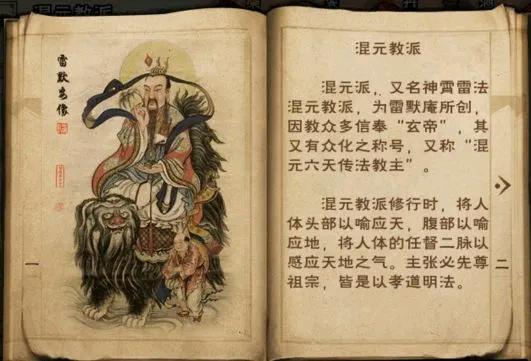 混元教派
雷默庵像
一
混元教派
混元派，又名神霄雷法
混元教派，为雷默庵所创，
因教众多信奉“玄帝”，其
又有众化之称号，又称“混
元六天传法教主”。
混元教派修行时，将人
体头部以喻应天，腹部以喻
应地，将人体的任督二脉以
感应天地之气。主张必先尊
祖宗，皆是以孝道明法。
二